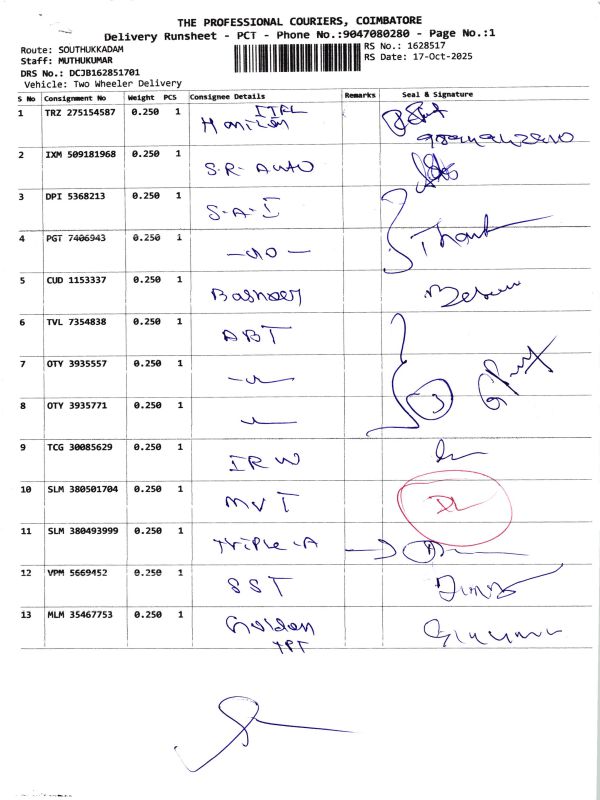 THE PROFESSIONAL COURIERS, COIMBATORE
Delivery Runsheet - PCT - Phone No.:9047080280 - Page No.:1
Route: SOUTHUKKADAM
RS No.: 1628517
Staff: MUTHUKUMAR
RS Date: 17-Oct-2025
DRS No.: DCJB162851701
Vehicle: Two Wheeler Delivery
S No Consignment No Weight PCS Consignee Details Remarks Seal & Signature
1 TRZ 275154587 0.250 1
2 IXM 509181968 0.250 1 S.R. AUTO
3 DPI 5368213 0.250 1 S-A-I
4 PGT 7406943 0.250 1 -do-
5 CUD 1153337 0.250 1
6 TVL 7354838 0.250 1 ABT
7 OTY 3935557 0.250 1
8 OTY 3935771 0.250 1
9 TCG 30085629 0.250 1 IRW
10 SLM 380501704 0.250 1 MVT DL
11 SLM 380493999 0.250 1 Triple-A
12 VPM 5669452 0.250 1 SST
13 MLM 35467753 0.250 1 Golden
TPT